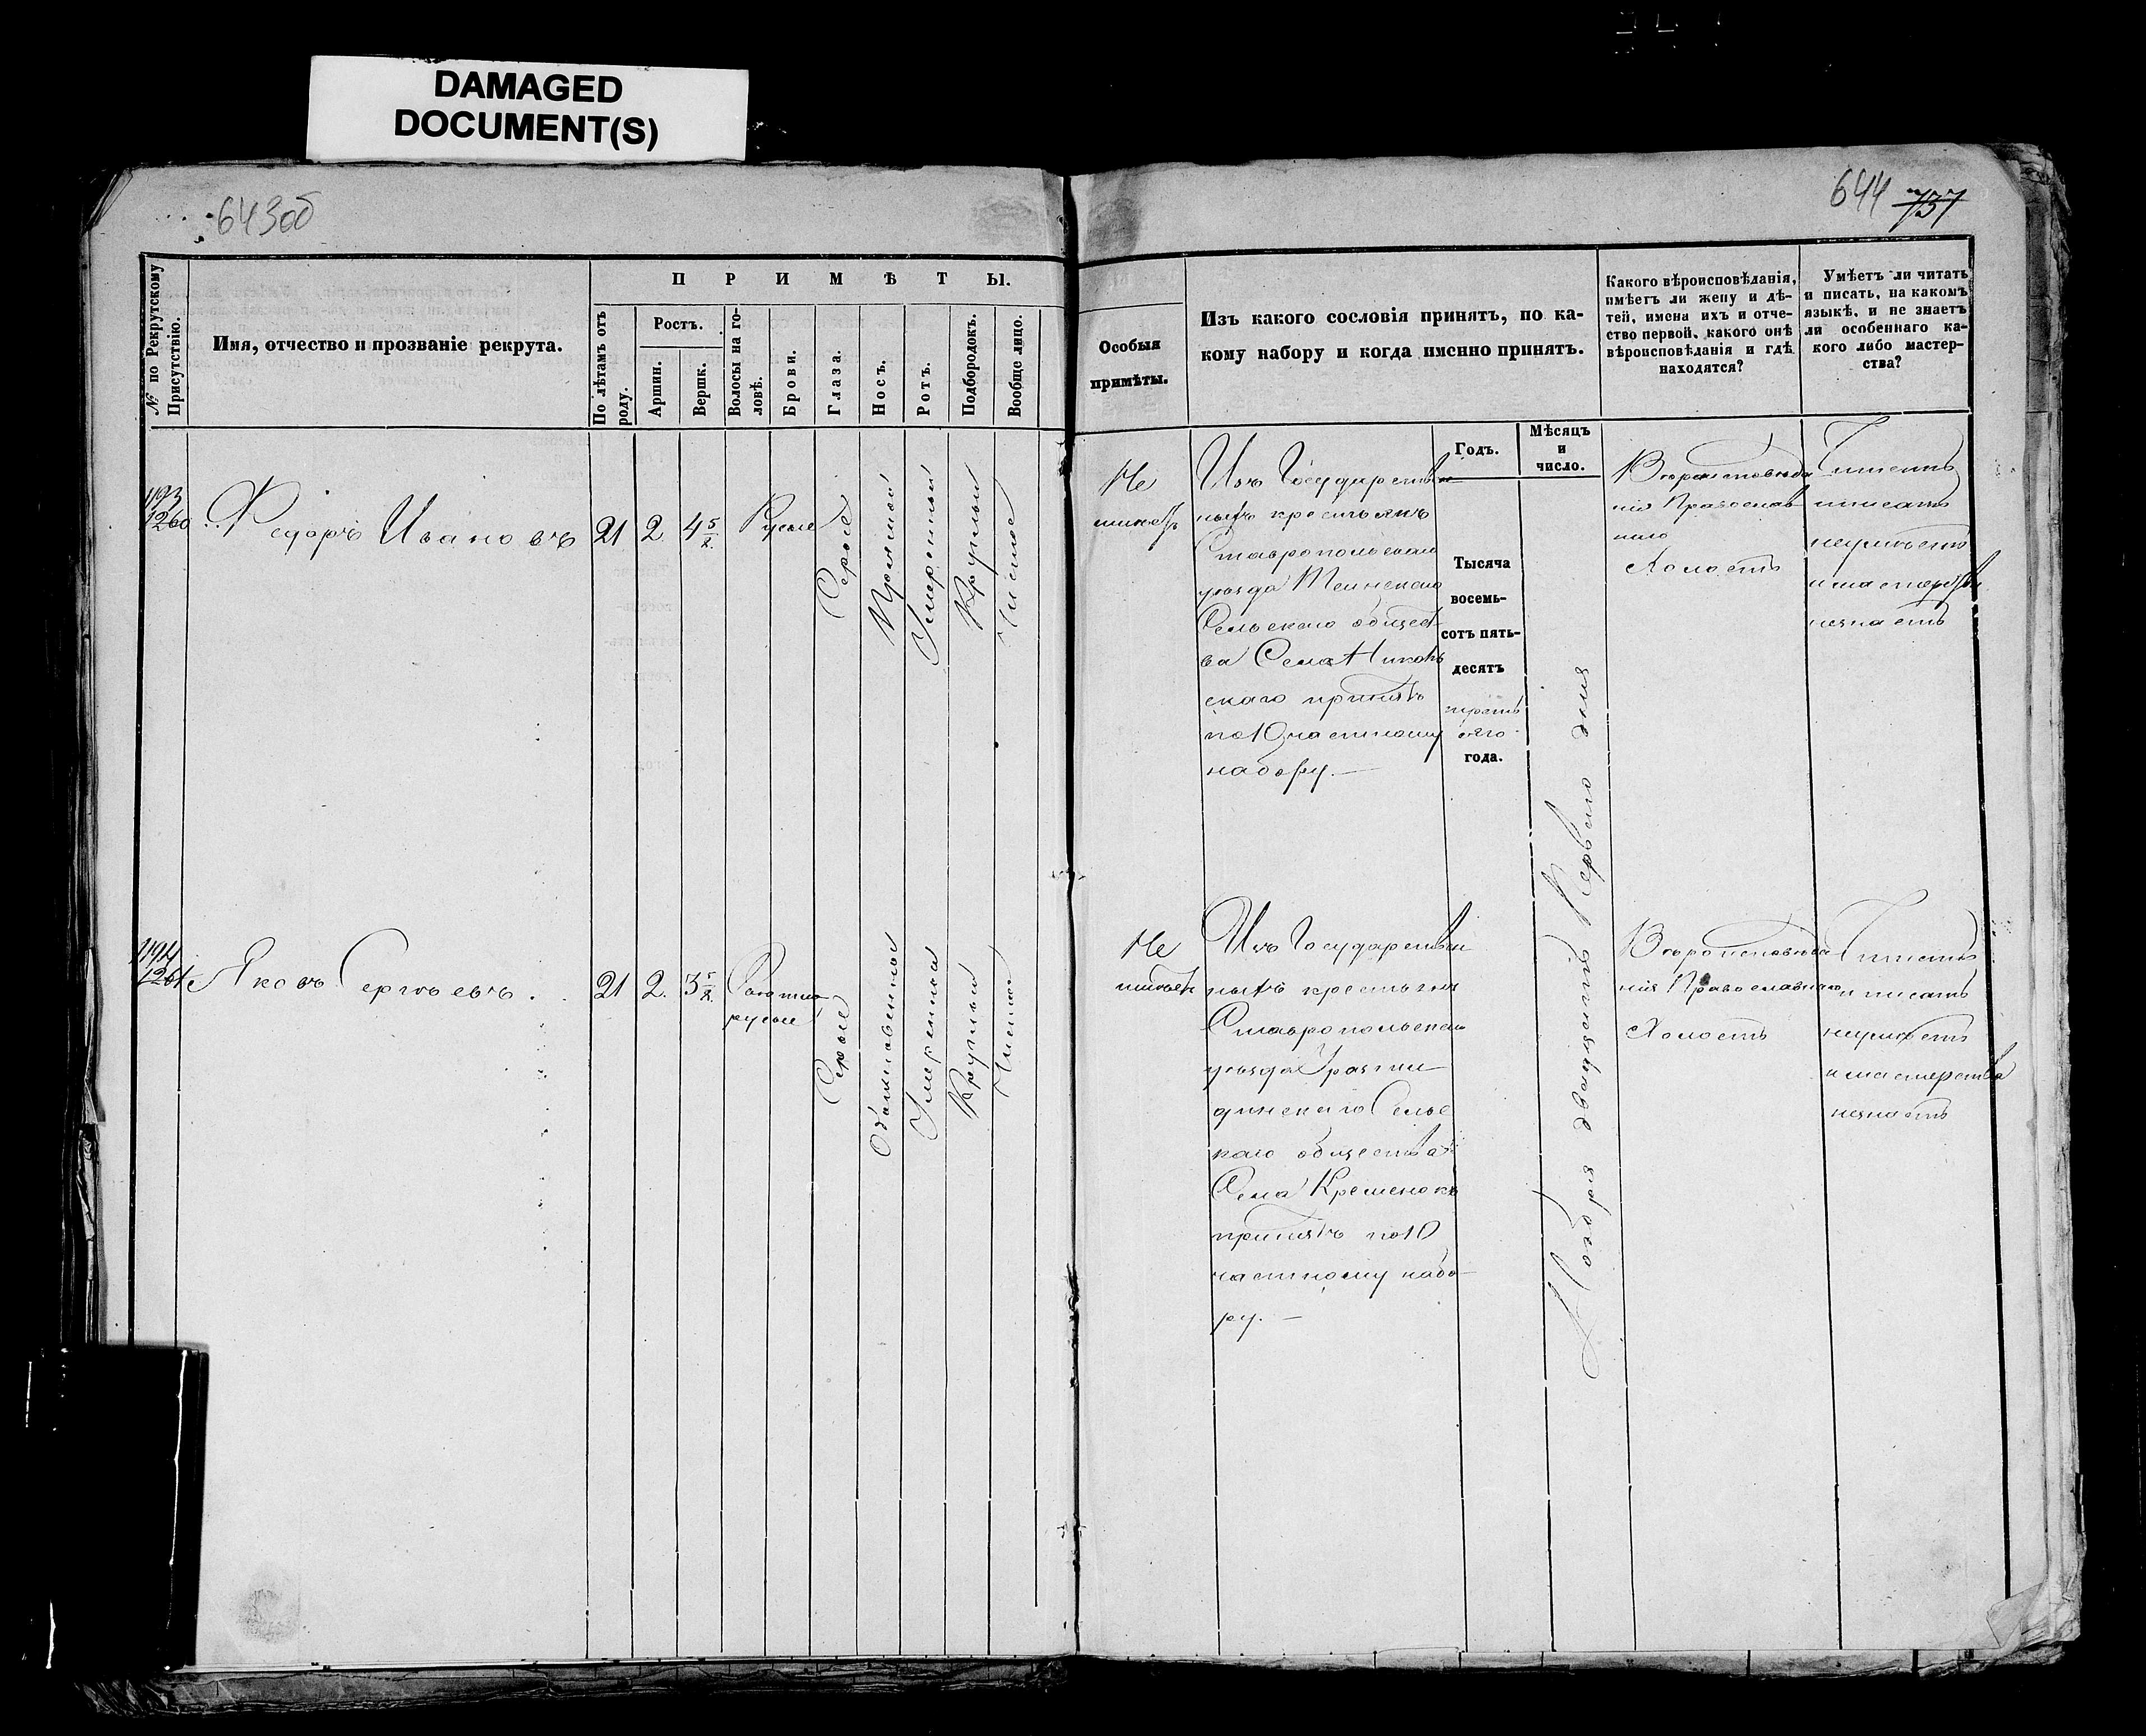 DAMAGED
DOCUMENT(S)
643об
644 737
№ по Рекрутскому
Присутствію.
Имя, отчество и прозваніе рекрута.
ПРИМѢТЫ.
По лѣтамъ отъ
роду.
Ростъ.
Аршин.
Вершк.
Волосы на го-
ловѣ.
Брови.
Глаза.
Носъ.
Ротъ.
Подбородокъ.
Вообще лицо.
Особыя
примѣты.
Изъ какого сословія принятъ, по ка-
кому набору и когда именно принятъ.
Какого вѣроисповѣданія,
имѣетъ ли жену и дѣ-
тей, имена ихъ и отче-
ство первой, какого онѣ
вѣроисповѣданія и гдѣ
находятся?
Умѣетъ ли читать
и писать, на какомъ
языкѣ, и не знаетъ
ли особеннаго ка-
кого либо мастер-
ства?
Годъ.
Мѣсяцъ
и
число.
1193
1260
Федоръ Ивановъ
21
2
4 5/8
Русые
Серые
Прямой
Умеренный
Круглый
Чистое
Не
имеетъ
Изъ Государствен
ныхъ крестьянъ
Ставропольскаго
уѣзда
Сельскаго общест
ва Села Николь
скаго принятъ
по 10 частному
набору.
Тысяча
восемь-
сотъ пять-
десятъ
треть
яго
года.
Ноября двадцать Перваго дня
Вѣроисповѣда
нія Православ
наго
Холостъ
Читать
писать
неумѣетъ
и мастерства
незнаетъ
1194
1261
Яковъ Сергѣевъ.
21
2.
3 5/8
русые
Серые
Обыкновенной
Умеренной
Круглый
Чистое
Не
имѣетъ
Изъ Государствен
ныхъ крестьянъ
Ставропольскаго
уѣзда
Сельс
каго общества
Села Кременокъ
принятъ по 10
частному набо
ру.
Вѣроисповѣда
нія Православнаго
Холостъ
Читать
и писать
неумѣетъ
и мастерства
незнаетъ